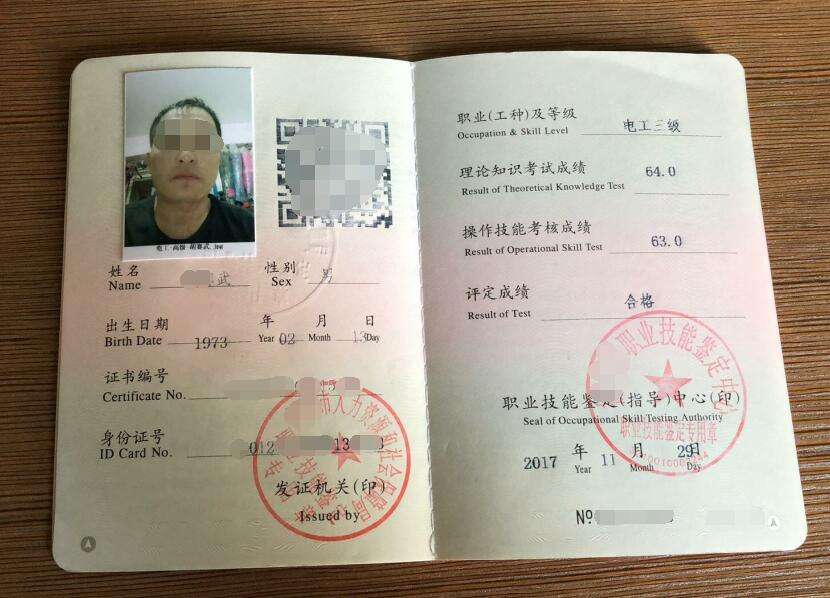 电工·高级
姓名 武 性别 男
Name Sex
出生日期 年 月 日
Birth Date 1973 Year 02 Month 13 Day
证书编号
Certificate No.
身份证号
ID Card No. 012 13
发证机关(印)
Issued by
市人力资源和社会保障局
职业(工种)及等级 电工三级
Occupation & Skill Level
理论知识考试成绩 64.0
Result of Theoretical Knowledge Test
操作技能考核成绩 63.0
Result of Operational Skill Test
评定成绩 合格
Result of Test
职业技能鉴定中心
职业技能鉴定(指导)中心(印)
Seal of Occupational Skill Testing Authority
职业技能鉴定专用章
2017 年 11 月 29 日
Year Month Day
№